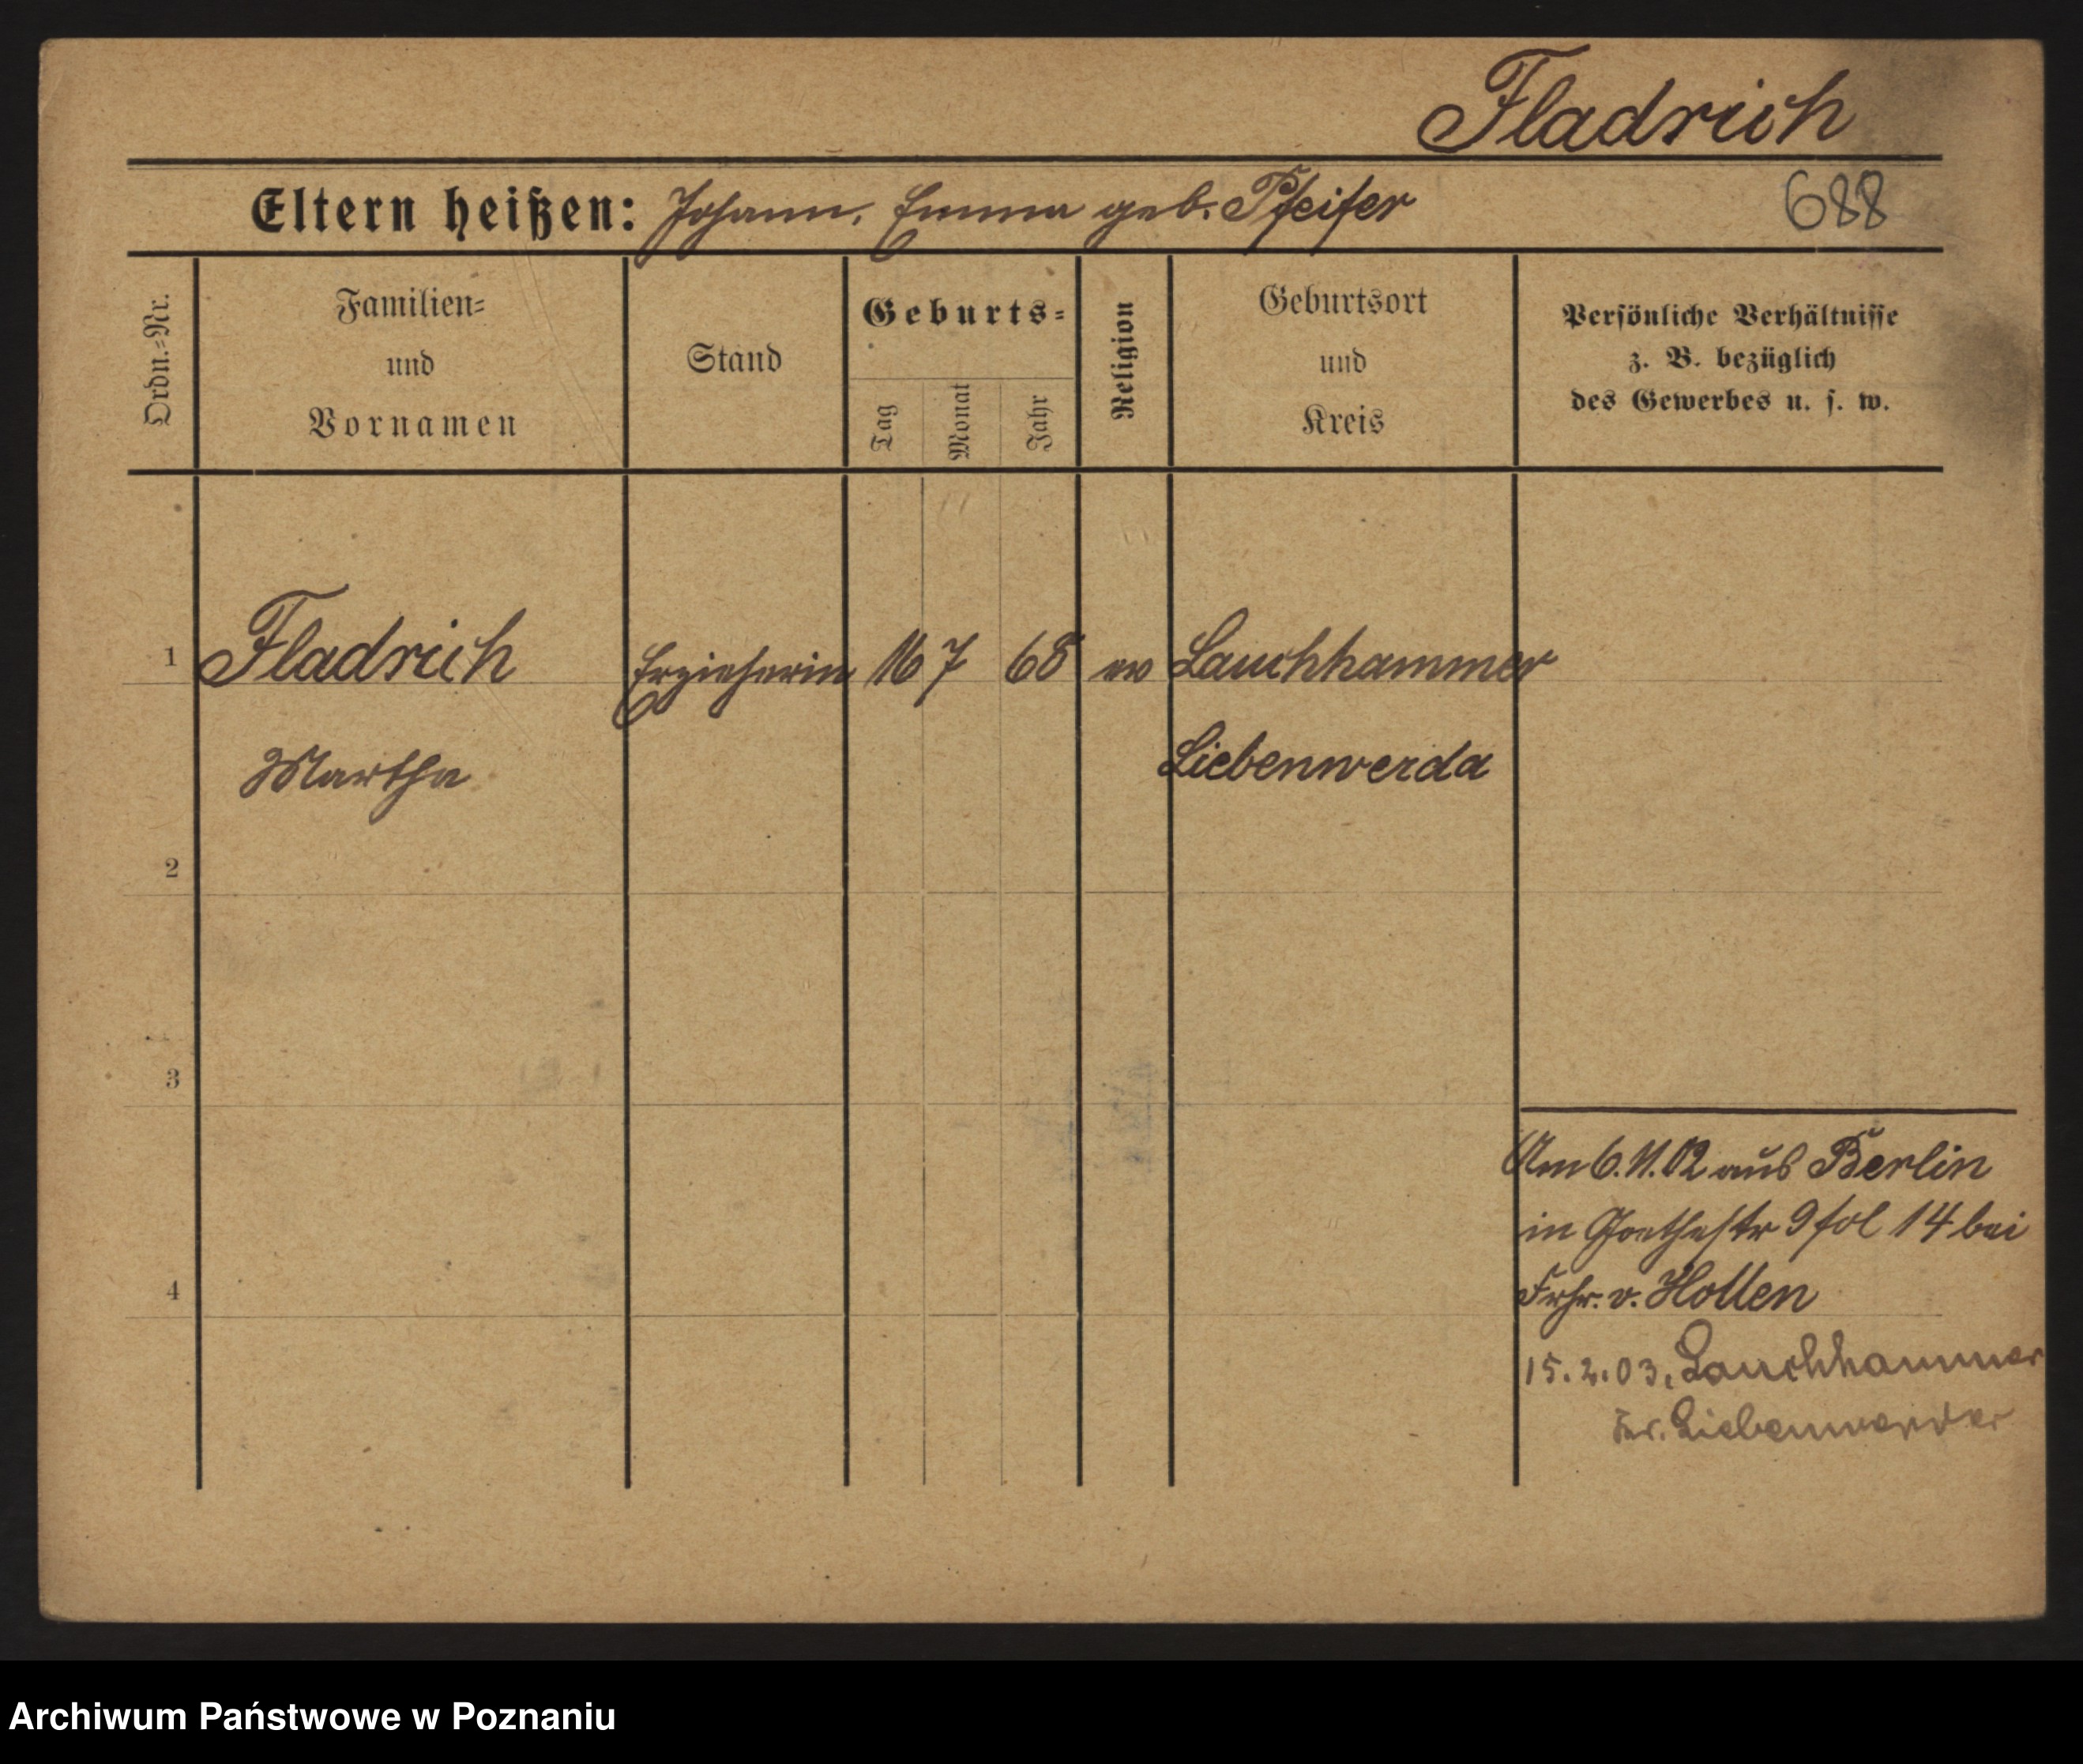 Fladrich
Eltern heißen: Johann, Emma geb. Pfeifer 688
Ordn.=Nr.
Familien=
und
Vornamen
Stand
Geburts=
Tag
Monat
Jahr
Religion
Geburtsort
und
Kreis
Persönliche Verhältnisse
z. B. bezüglich
des Gewerbes u. s. w.
1 Fladrich Erzieherin 16 7 68 ev Lauchhammer
Martha Liebenwerda
2
3
4
Am 6.11.02 aus Berlin
in Goethestr 9 fol 14 bei
Frhr. v. Hollen
15.2.03. Lauchhammer
Kr. Liebenwerda
Archiwum Państwowe w Poznaniu